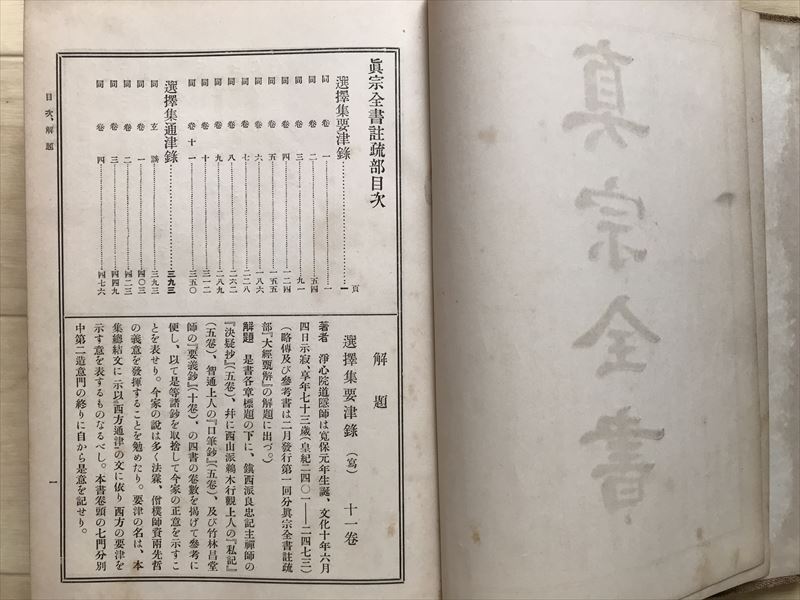 眞宗全書
眞宗全書註疏部目次
選擇集要津錄……一頁
同　卷　一……一
同　卷　二……五四
同　卷　三……九一
同　卷　四……一二四
同　卷　五……一五五
同　卷　六……一八六
同　卷　七……二二八
同　卷　八……二六二
同　卷　九……二八九
同　卷　十……三一二
同　卷十一……三五〇
選擇集通津錄……三九三
同　玄　談……三九三
同　卷　一……四〇三
同　卷　二……四二三
同　卷　三……四四九
同　卷　四……四七六
解題
選擇集要津錄（寫）　十一卷
著者　淨心院道隱師は寬保元年生誕、文化十年六月
四日示寂、享年七十三歲(皇紀二四〇一——二四七三)
(略傳及び參考書は二月發行第一回分眞宗全書註疏
部『大經甄解』の解題に出づ。)
解題　是書各章標題の下に、鎭西派良忠記主禪師の
『決疑抄』(五卷)、幷に西山派鵜木行觀上人の『私記』
(五卷)、智通上人の『口筆鈔』(五卷)、及び竹林昌堂
師の『要義鈔』(十卷)、の四書の卷數を揭げて參考に
便し、以て是等諸鈔を取捨して今家の正意を示すこ
とを表せり。今家の說は多く法霖、僧樸師資兩先哲
の義意を發揮することを勉めたり。要津の名は、本
集總結文に示以『西方通津』の文に依り西方の要津を
示す意を表するものなるべし。本書卷頭の七門分別
中第二造意門の終りに自から是意を記せり。
目次、解題
一